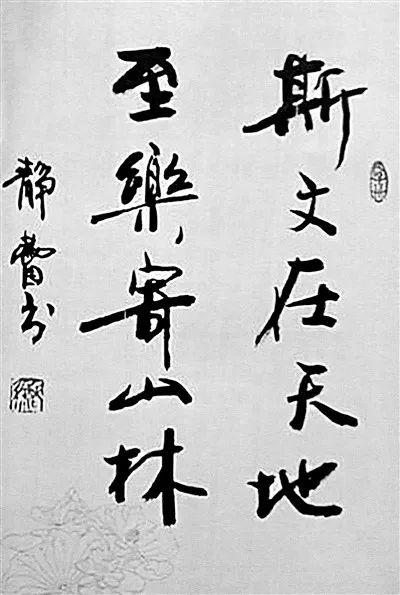 斯文在天地
至樂寄山林
静蕾书